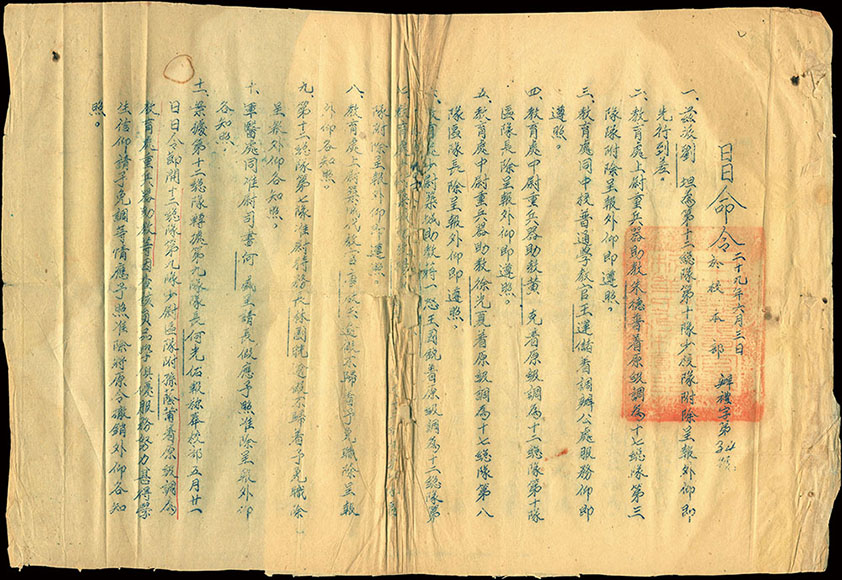 日日命令 二十九年六月三日
於校本部 辦禮字第34號
一、茲派劉 坦為第十二總隊第十隊少尉隊附除呈報外仰即
先行到差。
二、教育處上尉重兵器助教朱德普着原級調為十七總隊第三
隊隊附除呈報外仰即遵照。
三、教育處同中校普通學教官王運儲着調辦公處服務仰即
遵照。
四、教育處中尉重兵器助教黃 克着原級調為十二總隊第十隊
區隊長除呈報外仰即遵照。
五、教育處中尉重兵器助教徐光夏着原級調為十七總隊第八
隊區隊長除呈報外仰即遵照。
六、教育處中尉築城助教蔣一 王國 着原級調為十二總隊第
七、教育
隊附除呈報外仰即遵照。
八、教育處上尉築城代教官 不歸着予免職除呈報
外仰各知照。
九、第十二總隊第七隊准尉特務長林國 不歸着予免職除
呈報外仰各知照。
十、軍醫處同准尉司書何 呈請長假應予照准除呈報外仰
各知照。
十一、案據第十二總隊轉據第九隊隊長何光 報稱奉校部五月廿一
日日令即開十二總隊第九隊少尉區隊附孫蔭 着原級調為
教育處重兵器助教等因查該員品學俱優服務努力甚得學
生信仰請予免調等情應予照准除將原令撤銷外仰各知
照。